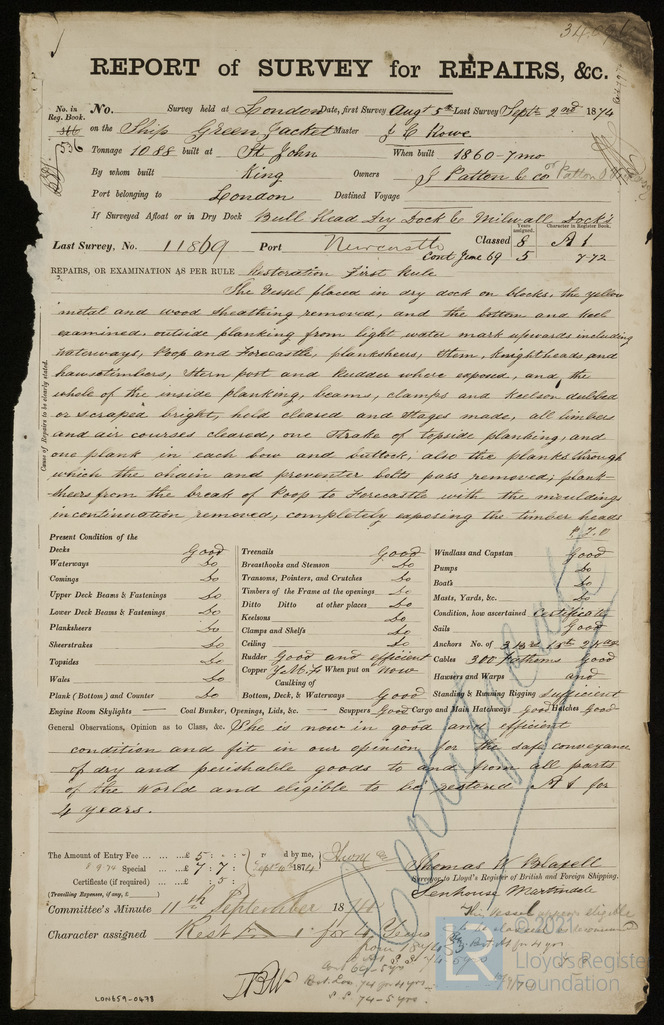 REPORT of SURVEY for REPAIRS, &c.
No. in Reg. Book. No. Survey held at London Date, first Survey Augt 5th Last Survey Septr 2nd 1874
on the Ship Green Jacket Master J C Rowe
536
Tonnage 1088 built at St John When built 1860-7mo
By whom built King Owners J Patton & co
Port belonging to London Destined Voyage
If Surveyed Afloat or in Dry Dock Bull Head Dry Dock & Milwall Dock's
Years assigned. Character in Register Book.
Last Survey, No. 11869 Port Newcastle Classed 8 A 1
Cont June 69 5 7-72
REPAIRS, OR EXAMINATION AS PER RULE Restoration First Rule
Cause of Repairs to be clearly stated.
The Vessel placed in dry dock on blocks, the yellow
metal and wood sheathing removed, and the bottom and keel
examined, outside planking from light water mark upwards including
waterways, Poop and Forecastle, planksheers, Stem, Knightheads and
hawsetimbers, Stern post and Rudder where exposed, and the
whole of the inside planking, beams, clamps and keelson dubbed
or scraped bright, hold cleared and stages made, all limbers
and air courses cleared, one strake of topside planking, and
one plank in each bow and buttock; also the planks through
which the chain and preventer bolts pass removed; plank-
sheers from the break of Poop to Forecastle with the mouldings
in continuation removed, completely exposing the timber heads
P.T.O
Present Condition of the
Decks Good
Waterways Do
Comings Do
Upper Deck Beams & Fastenings Do
Lower Deck Beams & Fastenings Do
Planksheers Do
Sheerstrakes Do
Topsides Do
Wales Do
Plank (Bottom) and Counter Do
Treenails Good
Breasthooks and Stemson Do
Transoms, Pointers, and Crutches Do
Timbers of the Frame at the openings Do
Ditto Ditto at other places Do
Keelsons Do
Clamps and Shelfs Do
Ceiling Do
Rudder Good and efficient
Copper Y.M. When put on Now
Caulking of
Bottom, Deck, & Waterways Good
Windlass and Capstan Good
Pumps Do
Boats Do
Masts, Yards, &c. Do
Condition, how ascertained Certificate
Sails Good
Anchors No. of
Cables 300 Fathoms Good
Hawsers and Warps and
Standing & Running Rigging Sufficient
Engine Room Skylights — Coal Bunker, Openings, Lids, &c. — Scuppers Good Cargo and Main Hatchways Good Hatches Good
General Observations, Opinion as to Class, &c. She is now in good and efficient
condition and fit in our opinion for the safe conveyance
of dry and perishable goods to and from all parts
of the World and eligible to be restored A 1 for
4 years.
The Amount of Entry Fee ... ...£ 5 : - : -
Special ... ...£ 7 : 7 :
Certificate (if required) ...£ : 5 :
(Travelling Expenses, if any, £ )
received by me,
Septr 10th 1874
Thomas W Blaxell
Surveyor to Lloyd's Register of British and Foreign Shipping.
Senhouse Martindale
Committee's Minute 11th September 1874
Character assigned Rest A 1 for 4 Years
LON659-0478
© 2021
LR
Lloyd's Register
Foundation